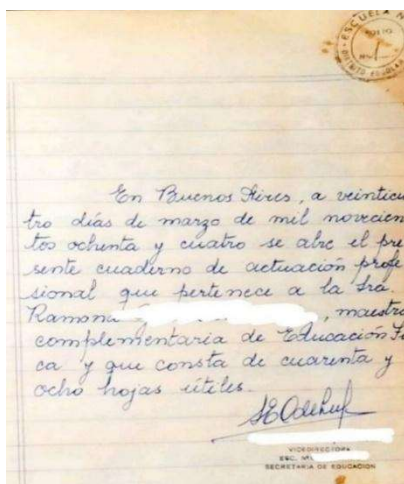 ESCUELA N
DISTRITO ESCOLAR
En Buenos Aires, a veinticua
tro días de marzo de mil novecien
tos ochenta y cuatro se abre el pre
sente cuaderno de actuación profe
sional que pertenece a la Sra.
Ramona , maestra
complementaria de Educación
ca y que consta de cuarenta y
ocho hojas útiles.
VICEDIRECTORA
ESC.
SECRETARIA DE EDUCACION